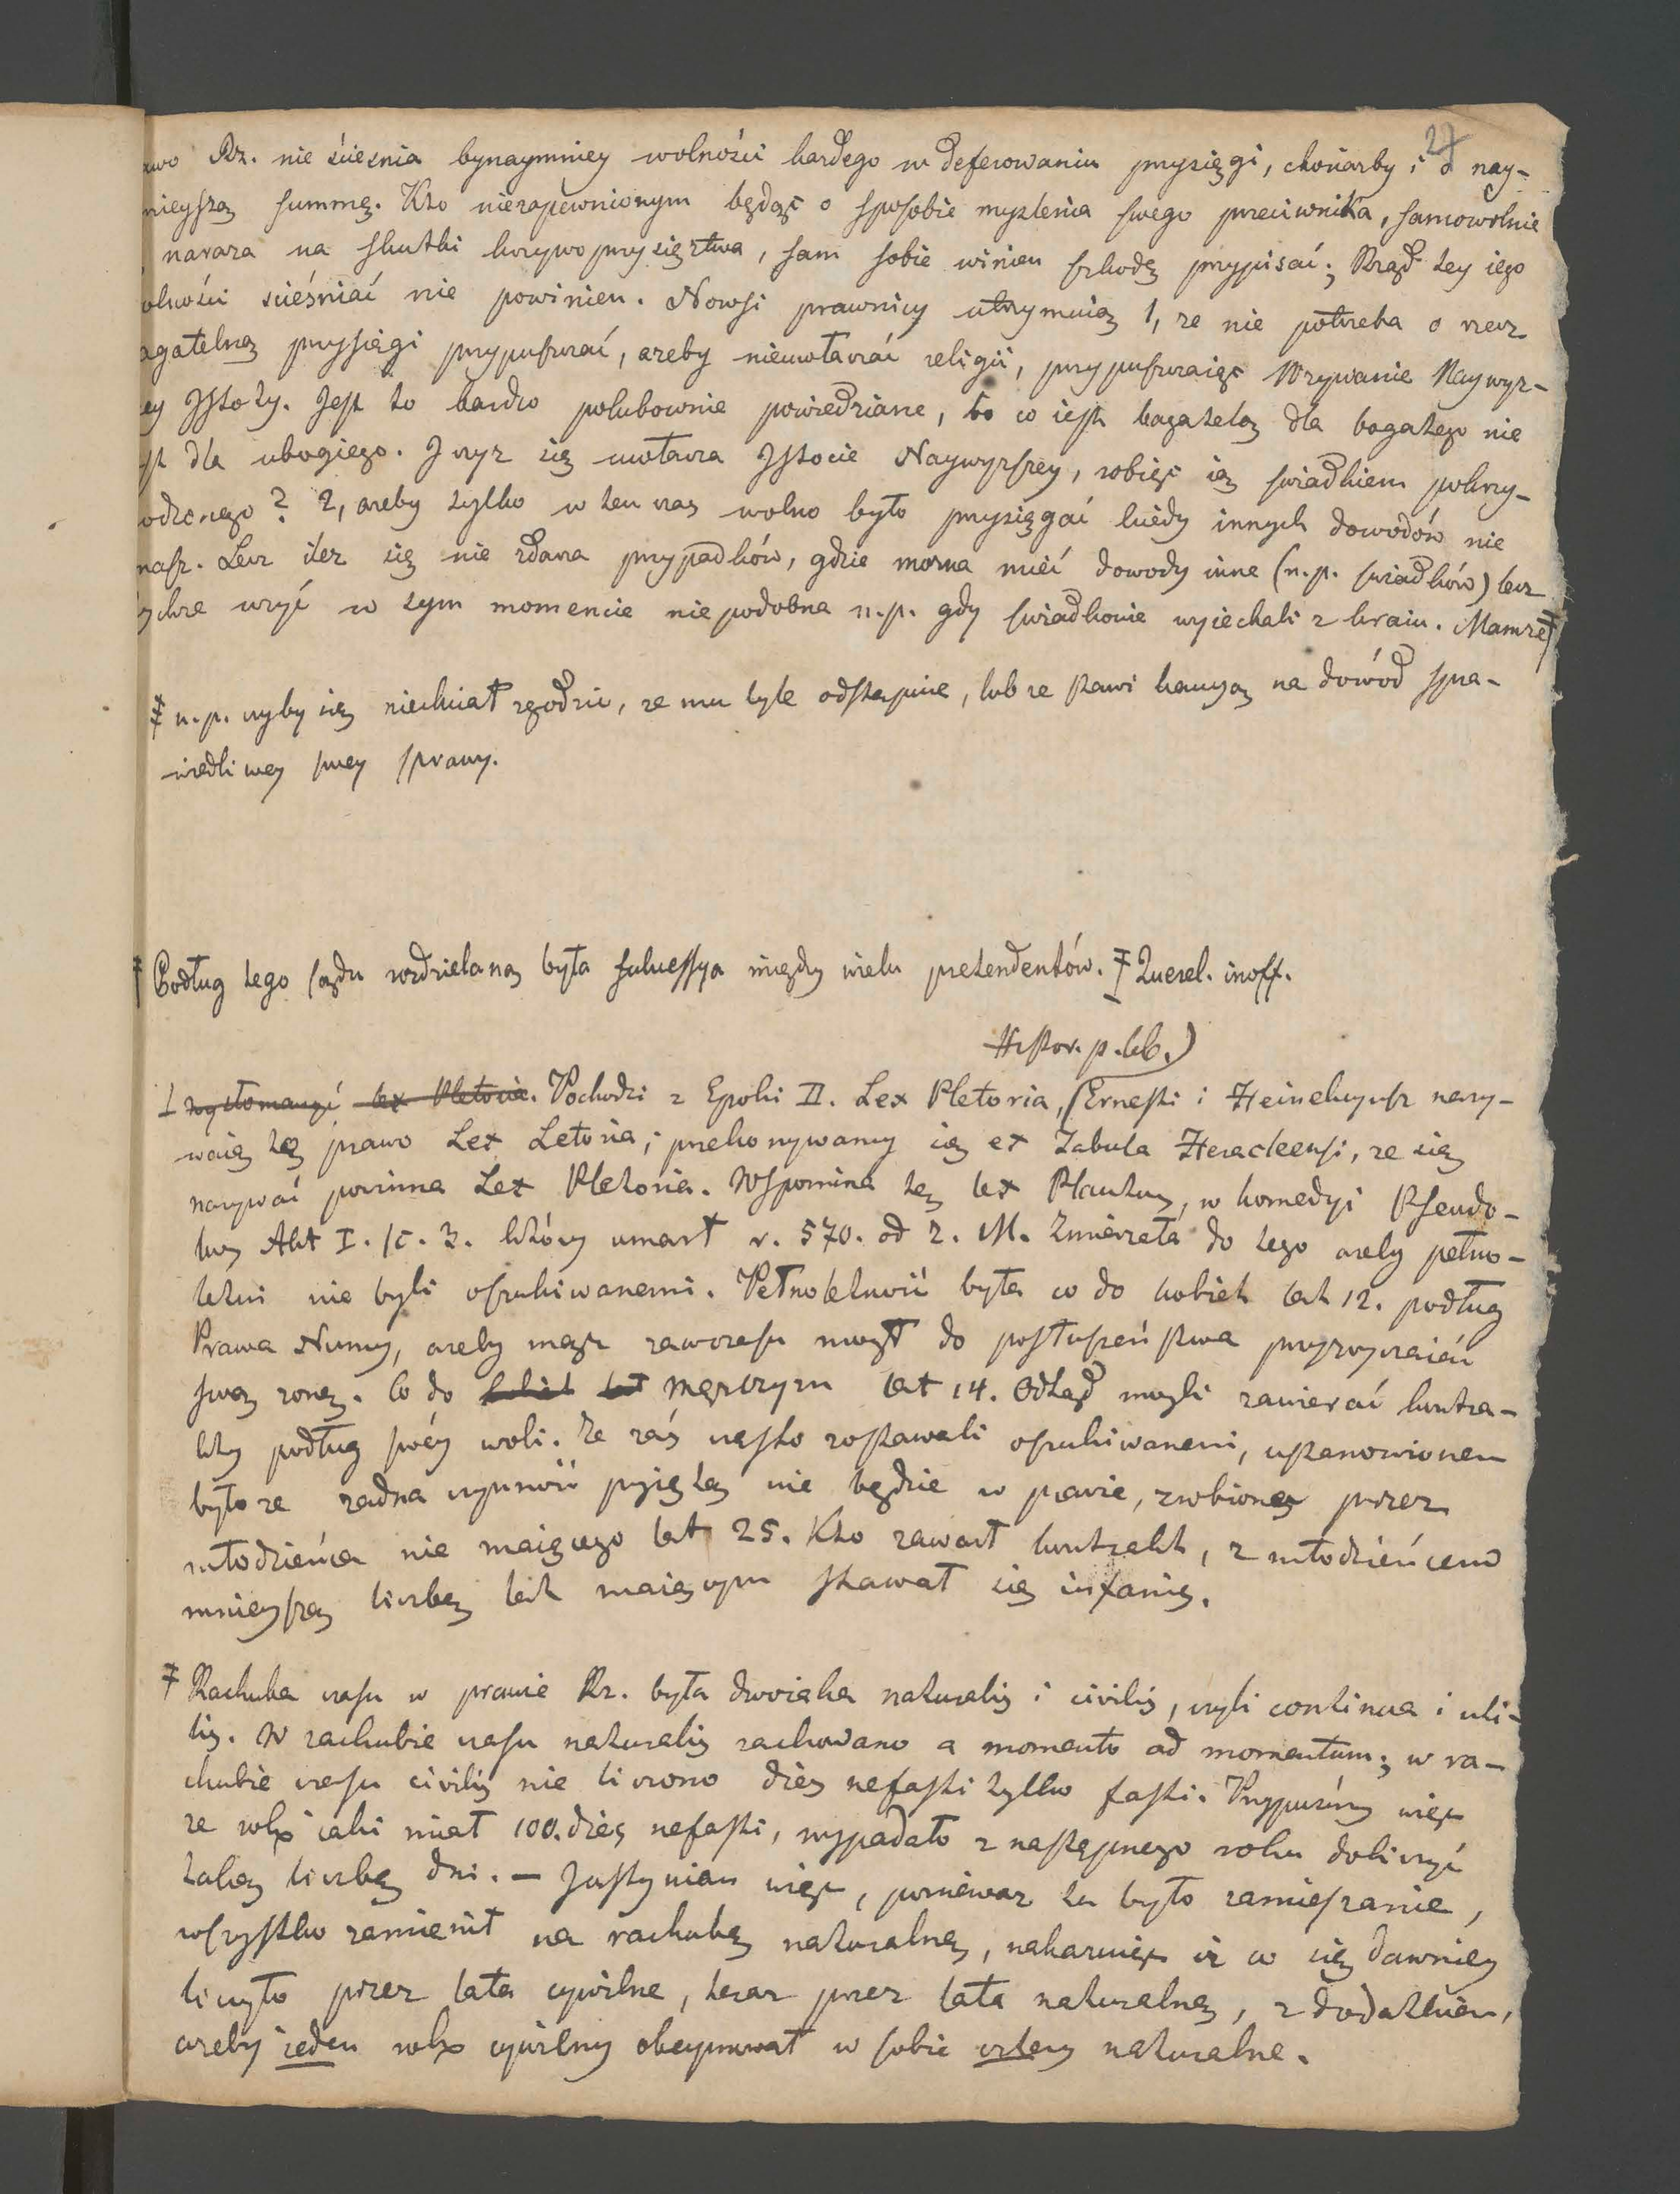 27
awo Rz. nie scieśnia bynaymniey wolności każdego w deferowaniu przysięgi, chociażby i o nay-
nieyszą summę. Kto niezapewnionym będąc o sposobie myslenia swego przeciwnika, samowolnie
naraża na skutki krzywoprzysięztwa, sam sobie winien szkodę przypisać; Rząd tey iego
olności scieśniać nie powinien. Nowsi prawnicy utrzymuią 1, że nie potrzeba o rzecz
agatelną przysięgi przypuszczać, ażeby nieuwłaczać religii, przypuszczaiąc Wzywanie Naywyż-
ey Istoty. Jest to bardzo polubownie powiedziane, bo co iest bagatelą dla bogatego nie
st dla ubogiego. I czyż się uwłacza Istocie Naywyższey, robiąc ią swiadkiem pokrzy-
odzonego? 2, ażeby tylko w ten czas wolno było przysięgać kiedy innych dowodów nie
masz. Lecz ileż się nie zdarza przypadków, gdzie można mieć dowody inne (n.p. swiadków) lecz
ychże użyć w tym momencie niepodobna n.p. gdy swiadkowie wyiechali z kraiu. Mamże ‡
‡ n.p. czyby się niechciał zgodzić, że mu tyle odstąpię, lub że stawi kaucyą na dowód spra-
wiedliwey swey sprawy.
‡ Podług tego sądu rozdzielaną była sukcessya między wielu pretendentów. ‡ Querel. inoff.
Histor. p. leb.)
⊥ Pochodzi z Epoki II. Lex Pletoria, (Ernesti i Heinekcyusz nazy-
waią tę prawo Lex Letoria; przekonywamy się ex Tabula Heracleensi, że się
nazywać powinna Lex Pletoria. Wspomina tę lex Plautus, w komedyi Pseudo-
lus Akt I. sc. 3. który umarł r. 570. od Z. M. Zmierzała do tego ażeby pełno-
letni nie byli oszukiwanemi. Pełnoletność była co do kobiet lat 12. podług
Prawa Numy, ażeby mąż zawczasu mógł do posłuszeństwa przyzwyczaiać
swą żonę. Co do mężczyzn lat 14. Odtąd mogli zawierać kontra-
kty podług swéy woli. Że zaś często zostawali oszukiwanemi, ustanowionem
było że żadna czynność przyiętą nie będzie w prawie, zrobioną przez
młodzieńca nie maiącego lat 25. Kto zawarł kontrakt, z młodzieńcem
mnieyszą liczbę lat maiącym stawał się infamis.
‡ Rachuba czasu w prawie Rz. była dwoiaka naturalis i civilis, czyli continua i uti-
lis. W rachubie czasu naturalis rachowano a momento ad momentum; w ra-
chubie czasu civilis nie liczono dies nefasti tylko fasti. Przypuśćmy więc
że rok cały miał 100. dies nefasti, wypadało z następnego roku doliczyć
takąż liczbę dni. – Justynian więc, ponieważ tu było zamieszanie,
wszystko zamienił na rachubę naturalną, nakazuiąc iż co się dawniey
liczyło przez lata cywilne, teraz przez lata naturalne, z dodatkiem,
ażeby ieden rok cywilny obeymował w sobie cztery naturalne.